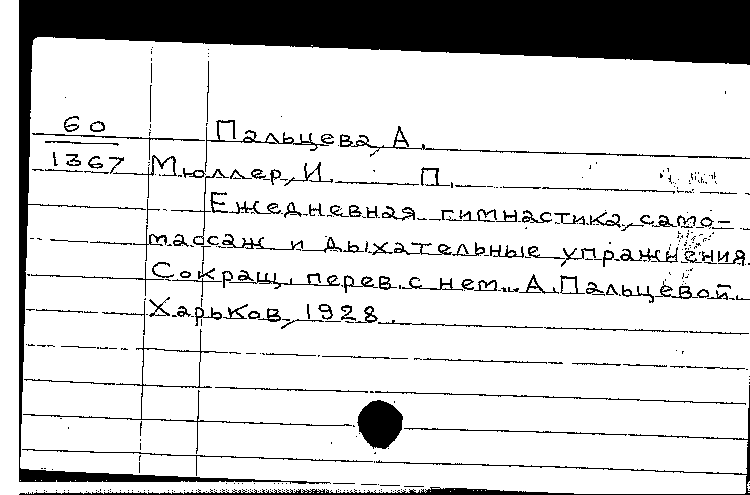 60 Пальцева, А.
1367 Мюллер, И. П.
Ежедневная гимнастика, само-
массаж и дыхательные упражнения.
Сокращ. перев. с нем. А. Пальцевой.
Харьков, 1928.